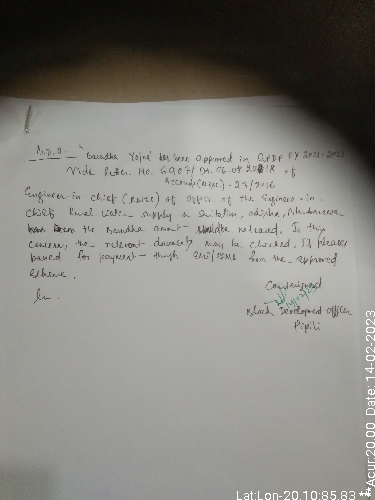 "Basudha Yojna" has been approved in GPDP FY 2022-2023
Vide Letter No. 6007/ Dt. 06.08.2018 of
Accounts(RWSS)-23/2016
Engineer in Chief (RWSS) of Office of the Engineer-in-
Chief, Rural Water Supply & Sanitation, Odisha, Bhubaneswar
the Basudha amount released. In this
concern, the relevant documents may be checked, If pleases
passed for payment through from the approved
scheme.
Countersigned
Block Development Officer
Pipili
Lat:Lon-20.10:85.83 **Acur:20.00 Date: 14-02-2023